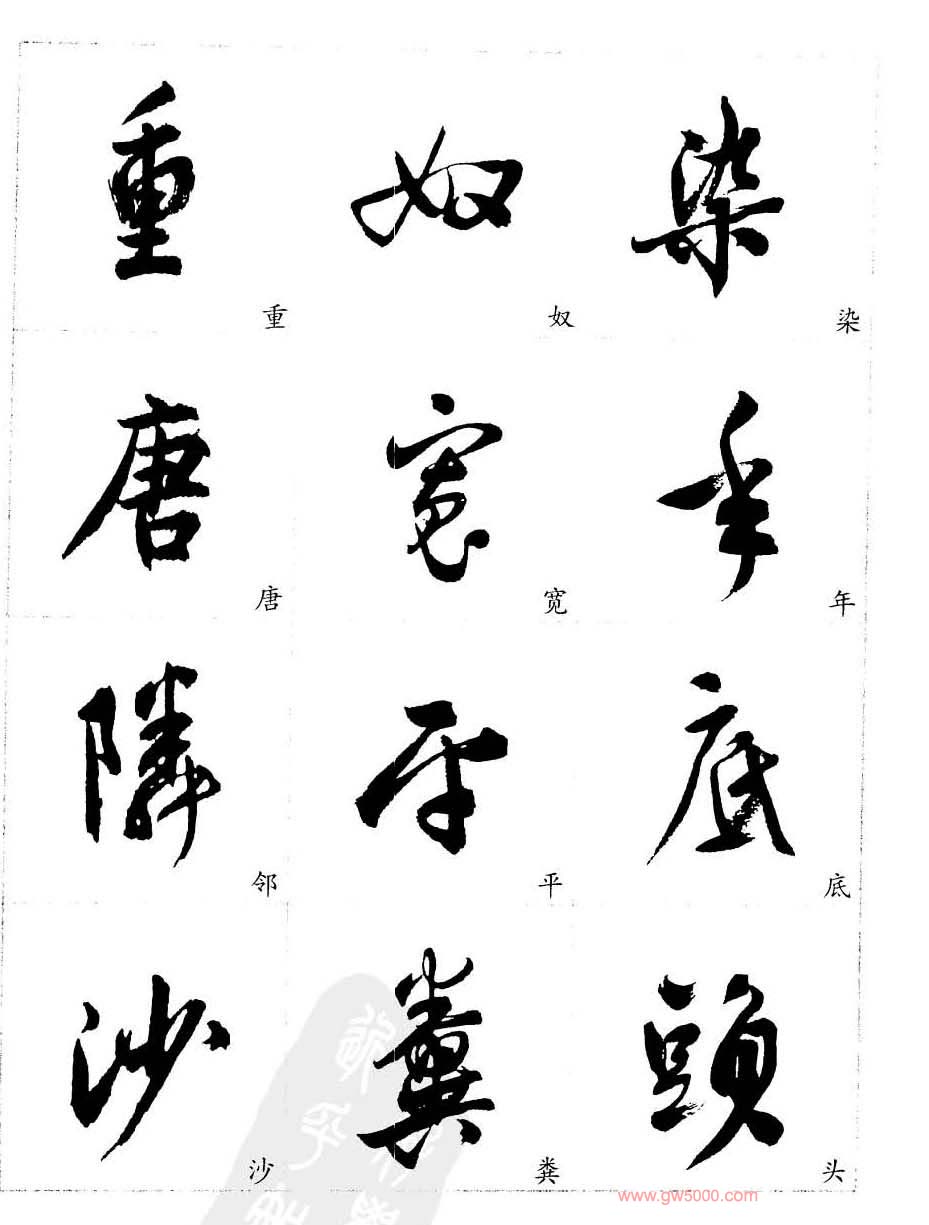 重 奴 染
重 奴 染
唐 寬 年
唐 宽 年
隣 平 底
邻 平 底
沙 糞 頭
沙 粪 头
www.gw5000.com